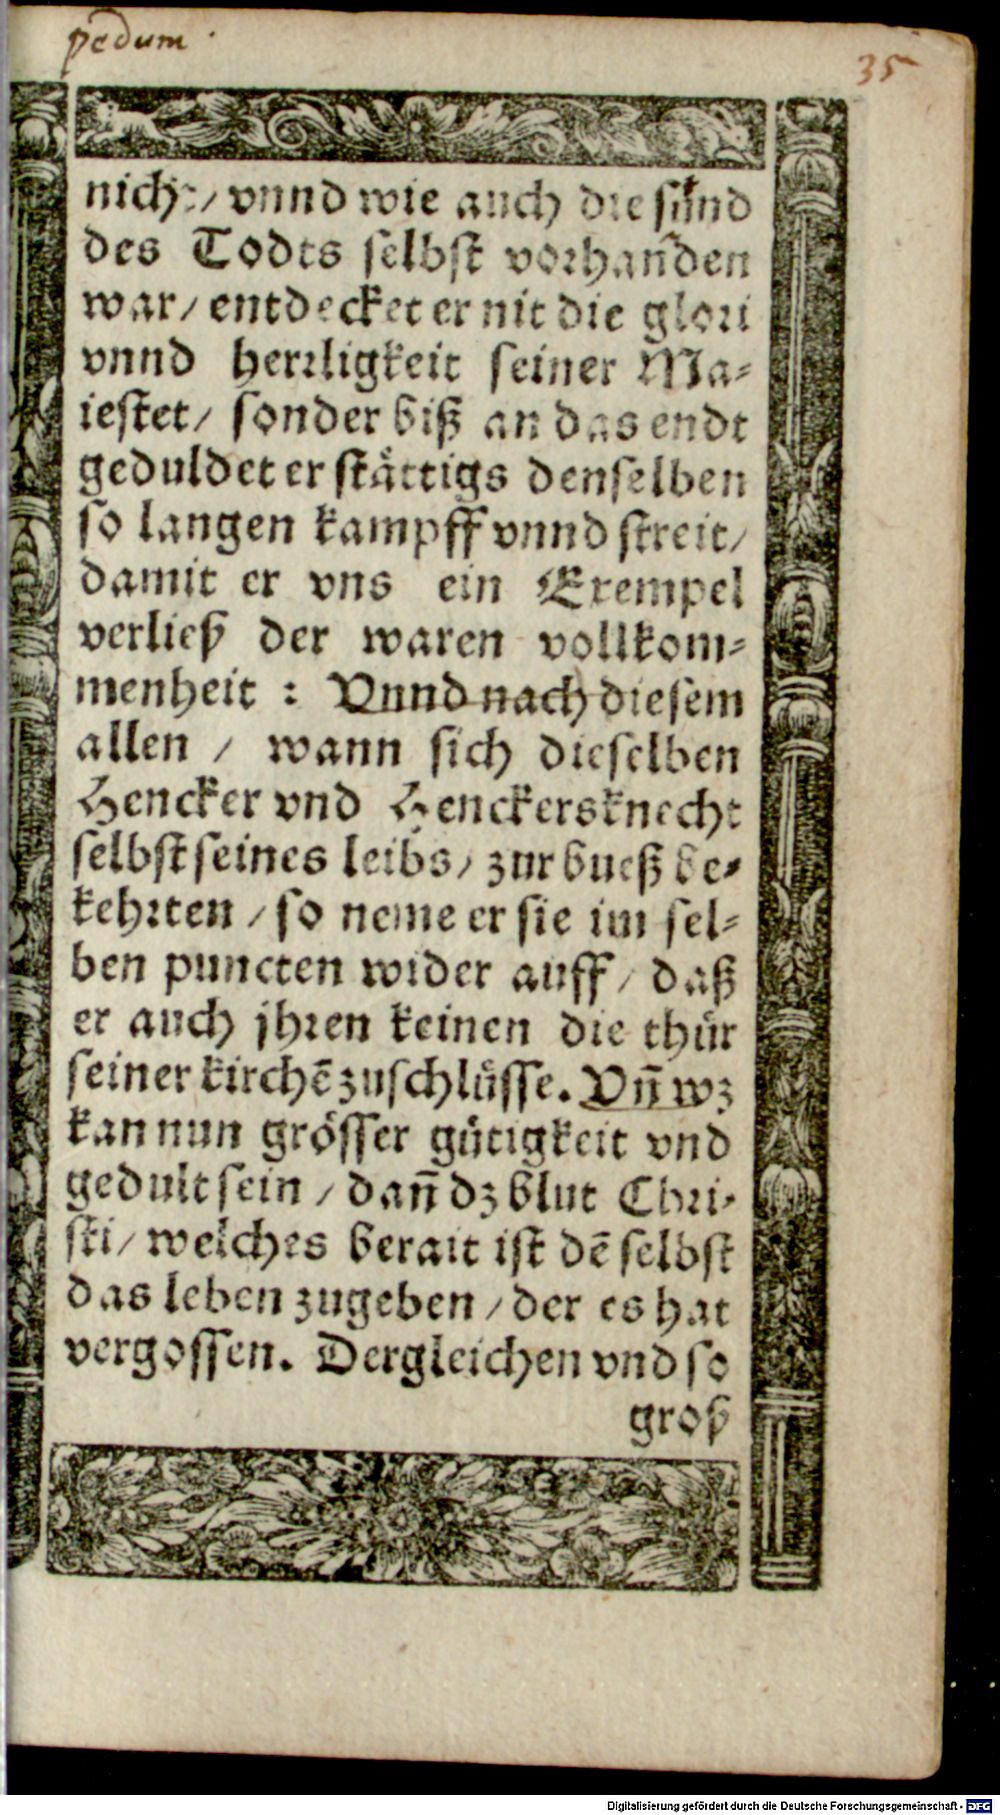 pedum.
35
nicht/ vnnd wie auch die stund
des Todts selbst vorhanden
war/ entdecket er nit die glori
vnnd herrligkeit seiner Ma-
iestet/ sonder biß an das endt
geduldet er stättigs denselben
so langen kampff vnnd streit/
damit er vns ein Exempel
verließ der waren vollkom-
menheit : Vnnd nach diesem
allen / wann sich dieselben
Hencker vnd Henckersknecht
selbst seines leibs/ zur bueß be-
kehrten / so neme er sie im sel-
ben puncten wider auff / daß
er auch jhren keinen die thür
seiner kirchē zuschlüsse. Vn̄ wz
kan nun grösser gütigkeit vnd
gedult sein / dan̄ dz blut Chri-
sti/ welches berait ist dē selbst
das leben zugeben / der es hat
vergossen. Dergleichen vnd so
groß
Digitalisierung gefördert durch die Deutsche Forschungsgemeinschaft - DFG